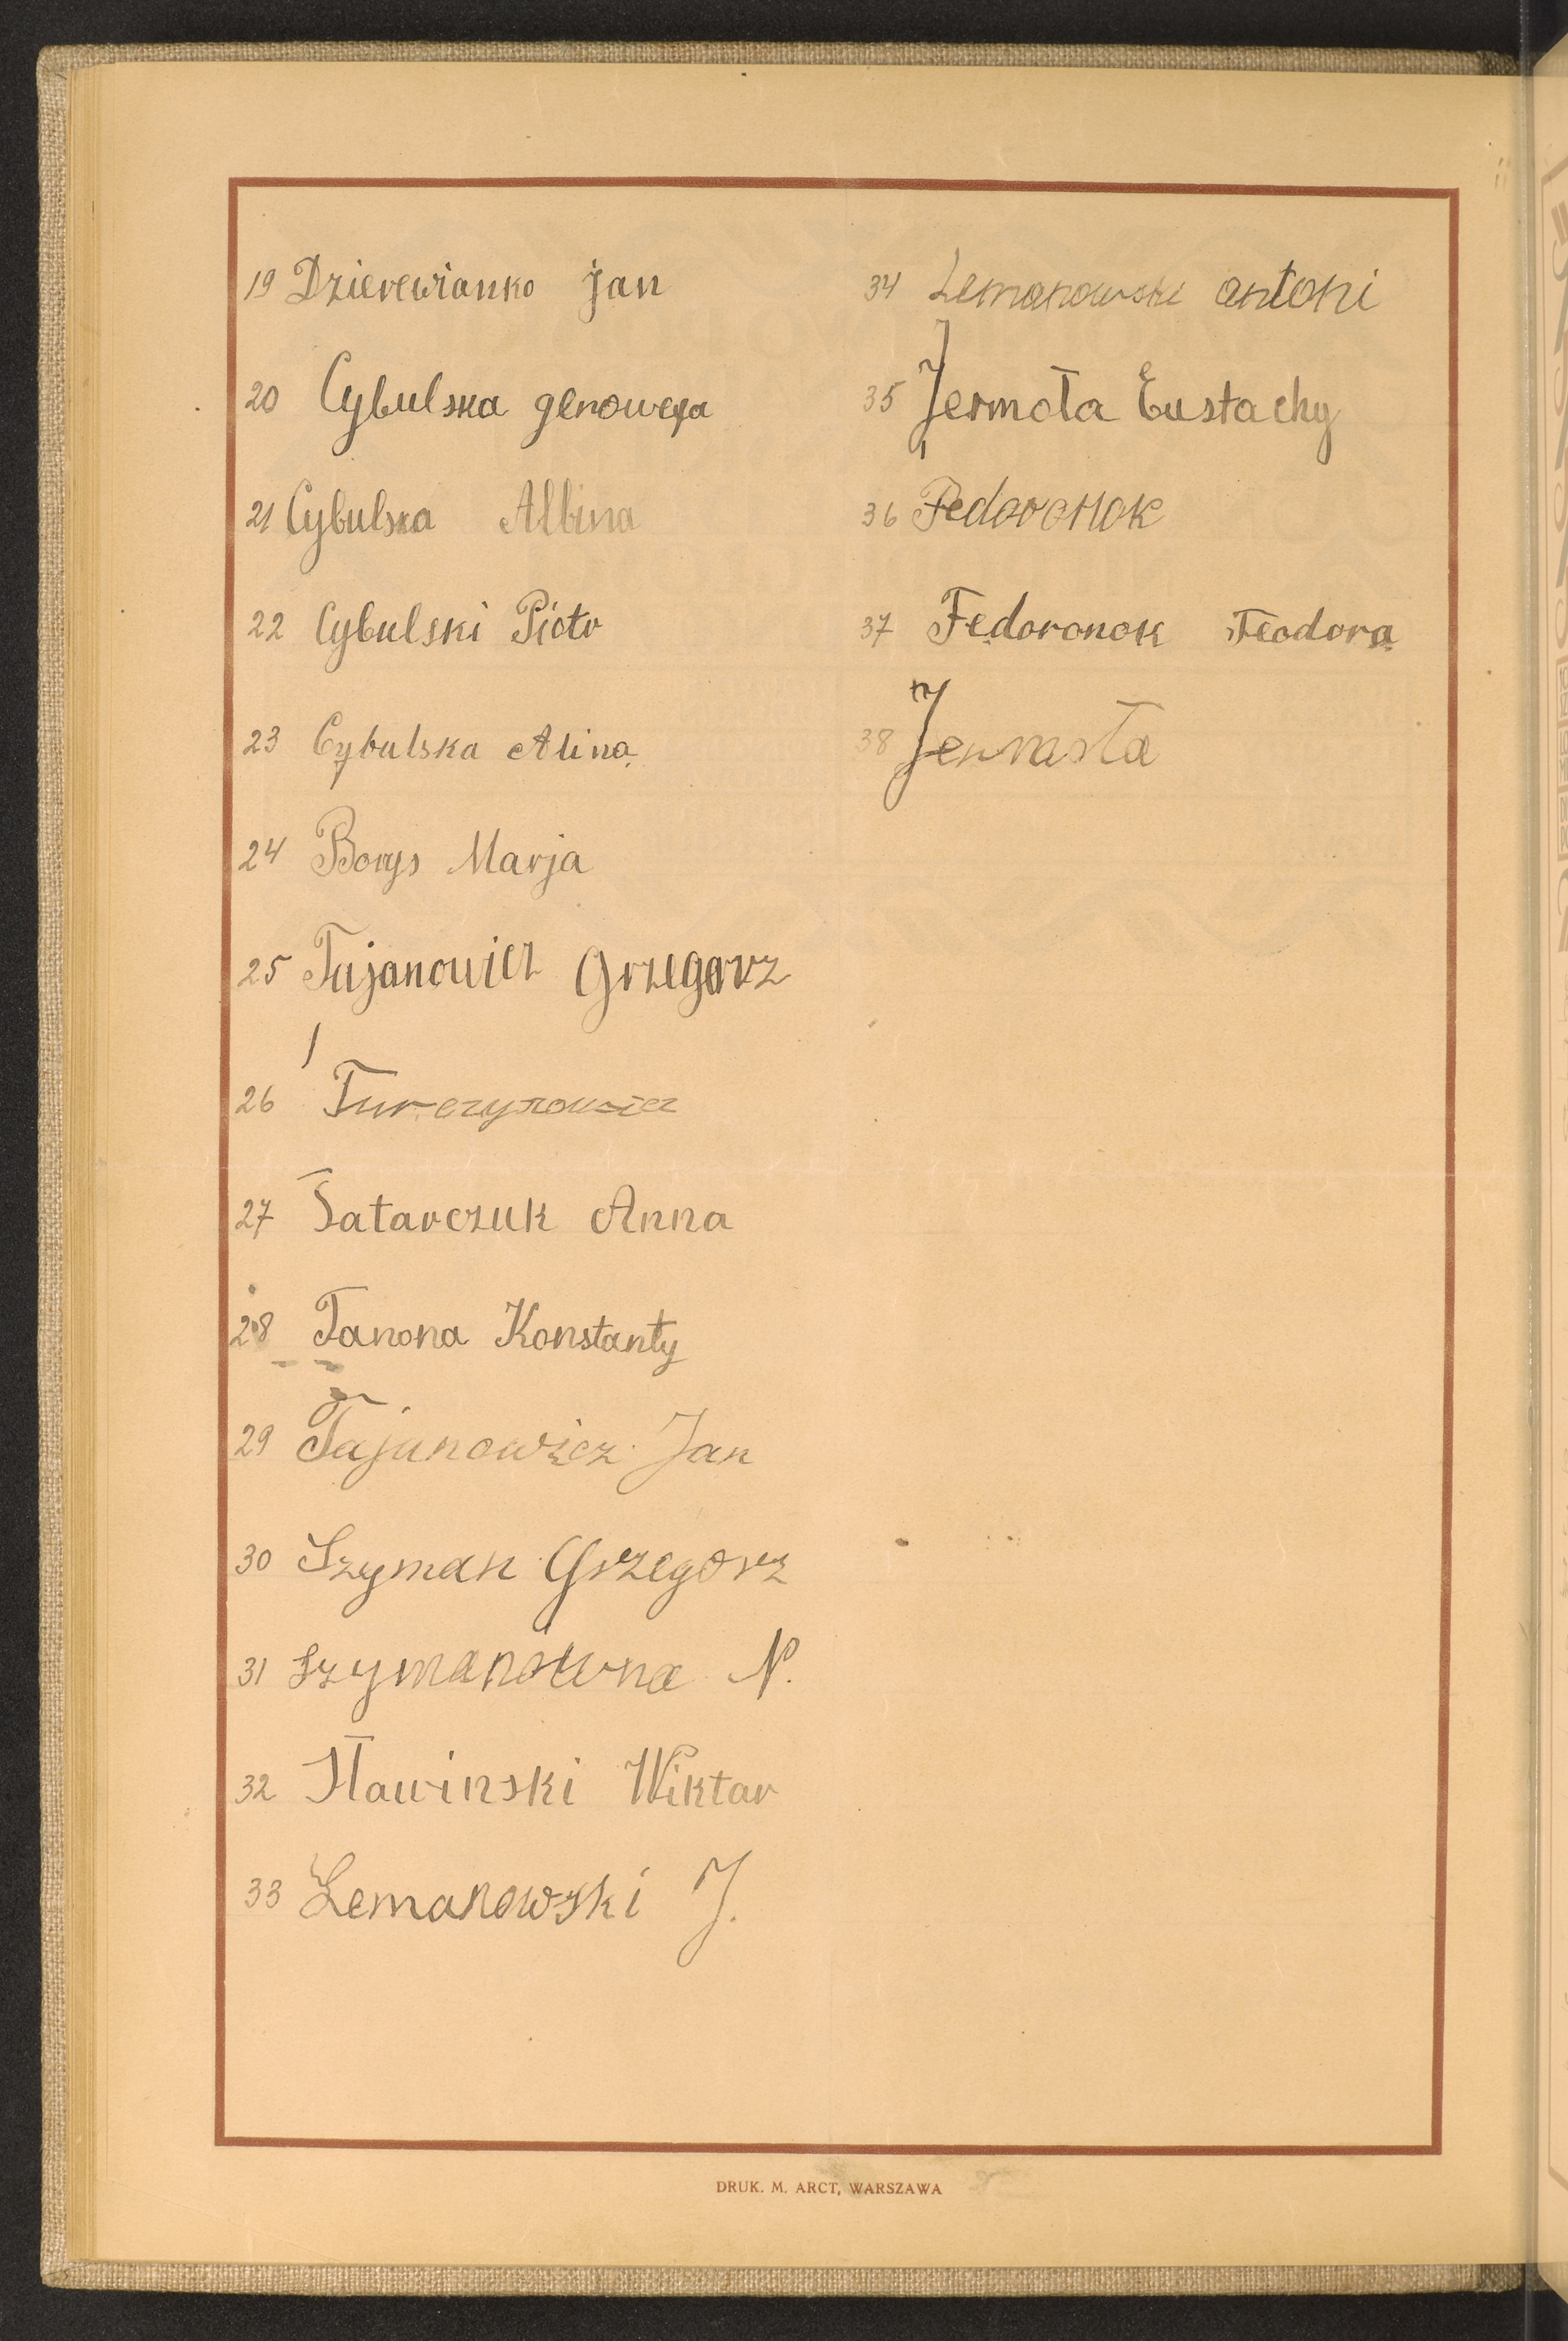 19 Dzierewianko jan
20 Cybulska genowefa
21 Cybulska Albina
22 Cybulski Piotr
23 Cybulska Alina
24 Borys Marja
25 Tajanowicz Grzegorz
26 Turczynowicz
27 Tatarczuk Anna
28 Tanona Konstanty
29 Tajanowicz Jan
30 Szyman Grzegorz
31 Szymanówna N.
32 Sławinski Wiktar
33 Lemanowski J.
34 Lemanowski antoni
35 Jermoła Eustachy
36 Fedoronok
37 Fedoronok Feodora
38
DRUK. M. ARCT, WARSZAWA